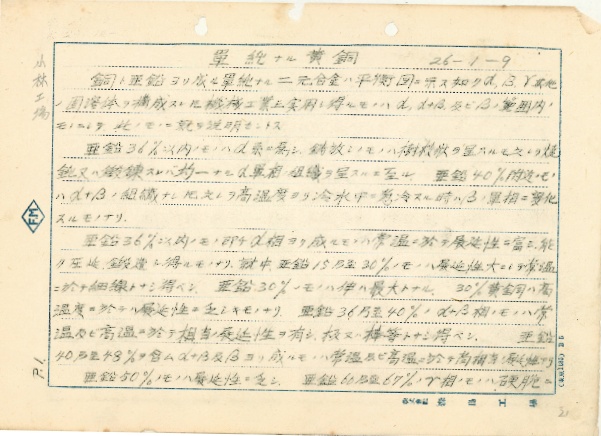 單純ナル黄銅 26-1-9
銅ト亜鉛ヨリ成ル單純ナル二元合金ハ平衡図ニ示ス如クα,β,γ其他
固溶体ヲ構成スルモ機械工業上実用シ得ルモノハα,α+β及ビβノ範囲内ノ
モノニシテ 此ノモノニ就テ説明セントス
亜鉛36%以内ノモノハα系ニ属シ、鋳放シノモノハ樹枝状ヲ呈スルモ之ヲ焼
鈍又ハ鍛錬スレバ均一ナルα單相組織ヲ呈スルニ至ル 亜鉛40%附近ノモノ
ハα+βノ組織ナルモ之ヲ高温度ヨリ冷水中ニ急冷スル時ハβノ單相ニ変化
スルモノナリ.
亜鉛36%以内ノモノ即チα相ヨリ成ルモノハ常温ニ於テ展延性ニ富ミ、能
ク圧延、鍛造シ得ルモノナリ. 就中亜鉛15乃至30%ノモノハ展延性大ニシテ常温
ニ於テ細線トナシ得ベシ. 亜鉛30%ノモノハ伸ハ最大トナル. 30%黄銅ハ高
温度ニ於テハ展延性ニ乏シキモノナリ. 亜鉛36乃至40%ノα+β相モノハ常
温及ビ高温ニ於テ相当ノ展延性ヲ有シ、板又ハ棒等トナシ得ベシ. 亜鉛
40乃至48%ヲ含ムα+β及βヨリ成ルモノハ常温及ビ高温ニ於テ尚相当ノ展延性アリ
亜鉛50%ノモノハ展延性ニ乏シ. 亜鉛60乃至67%ノγ相ノモノハ硬脆ニ
小林工場
FM
P.1.